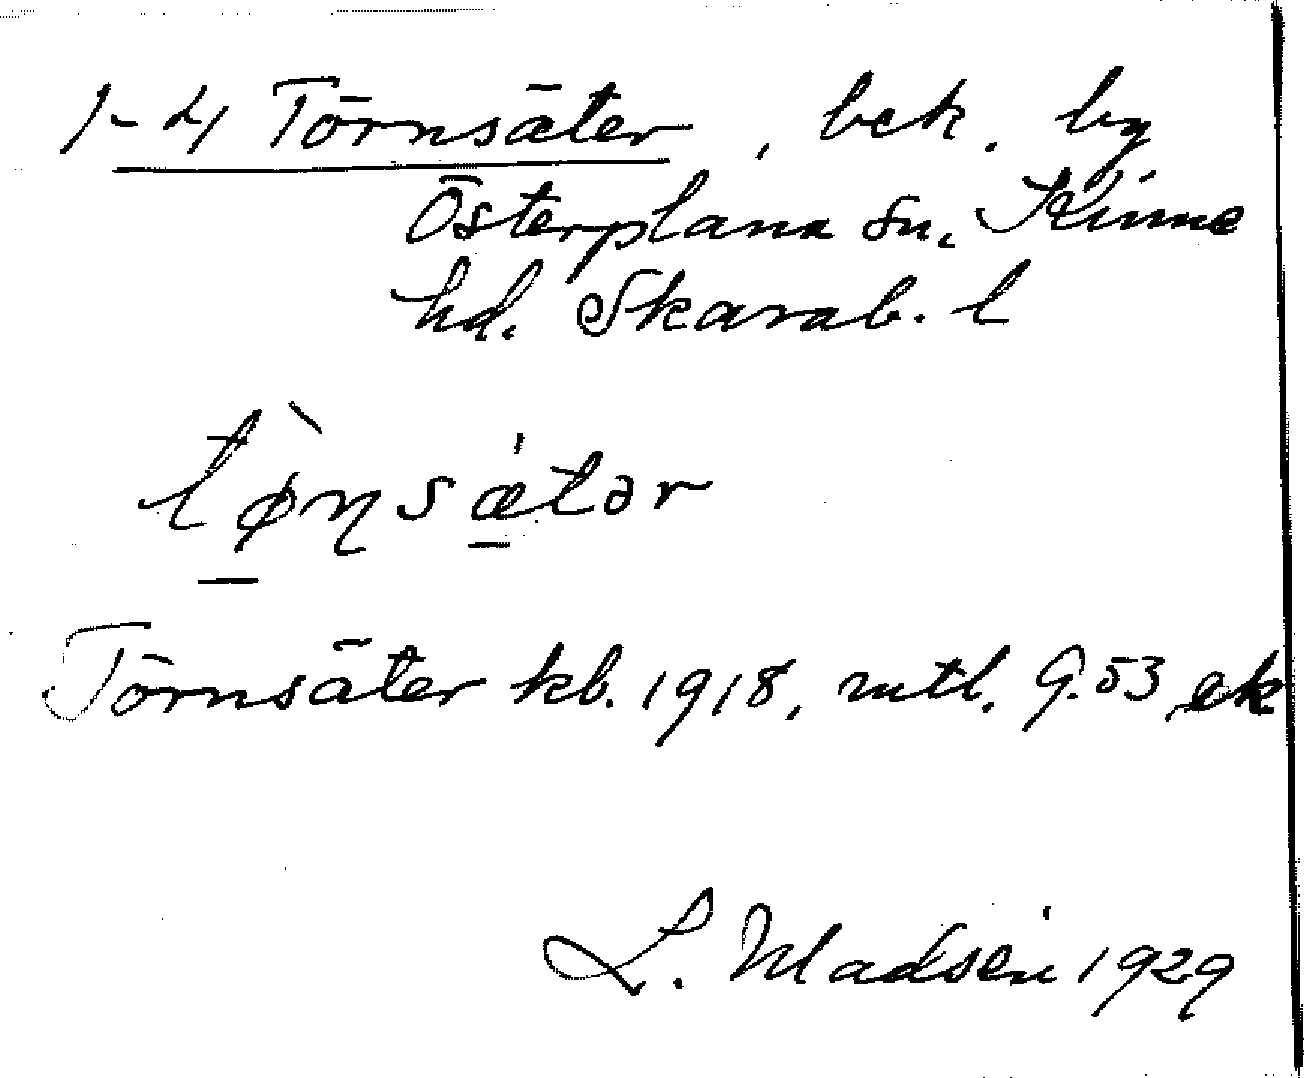 1-4 Törnsäter, bek. by
Österplana sn. Kinne
hd. Skarab. l
tø̀ṇsǽtər
Törnsäter kb. 1918, mtl. 9.53 ek
L. Madsén 1929